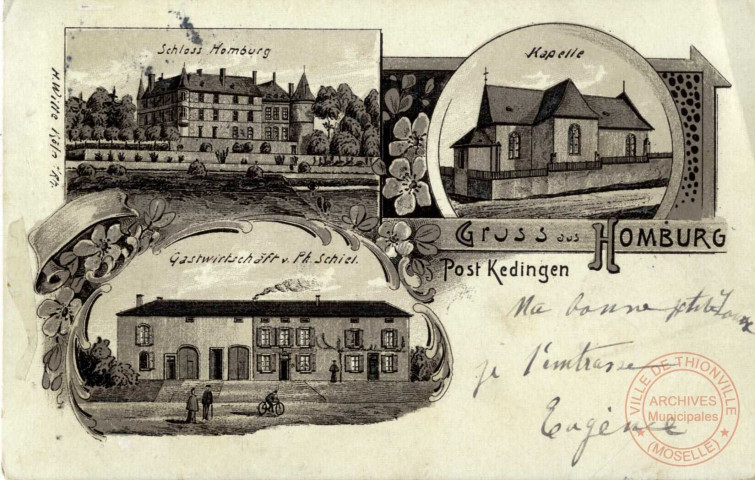 Schloss Homburg
Kapelle
Gruss aus Homburg
Post Kedingen
Gastwirtschaft v. Ph. Schiel.
Ma bonne ptite
je t'embrasse
Eugénie
VILLE DE THIONVILLE
ARCHIVES
Municipales
(MOSELLE)